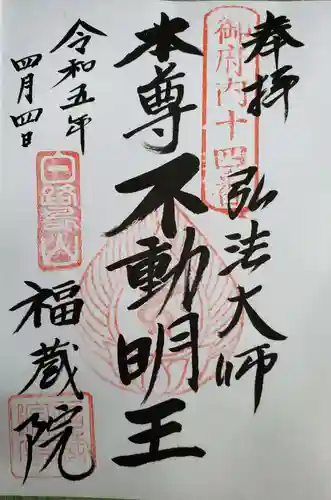 奉拝
弘法大師
御府内十四番
本尊
不動明王
令和五年
四月四日
白鷺山
福蔵院